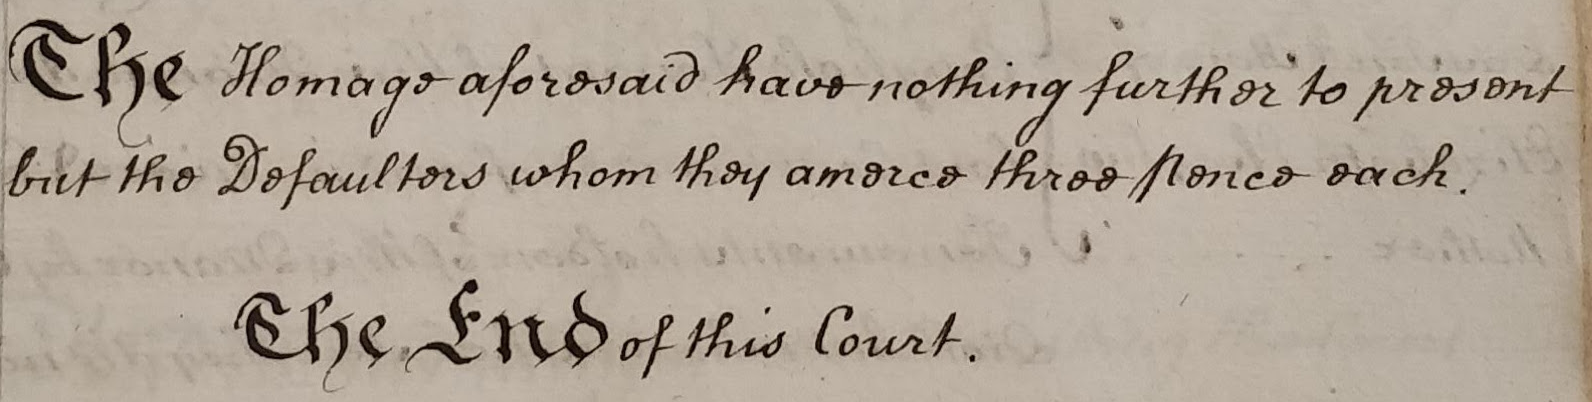 The Homage aforesaid have nothing further to present
but the Defaulters whom they amerce three Pence each.
The End of this Court.